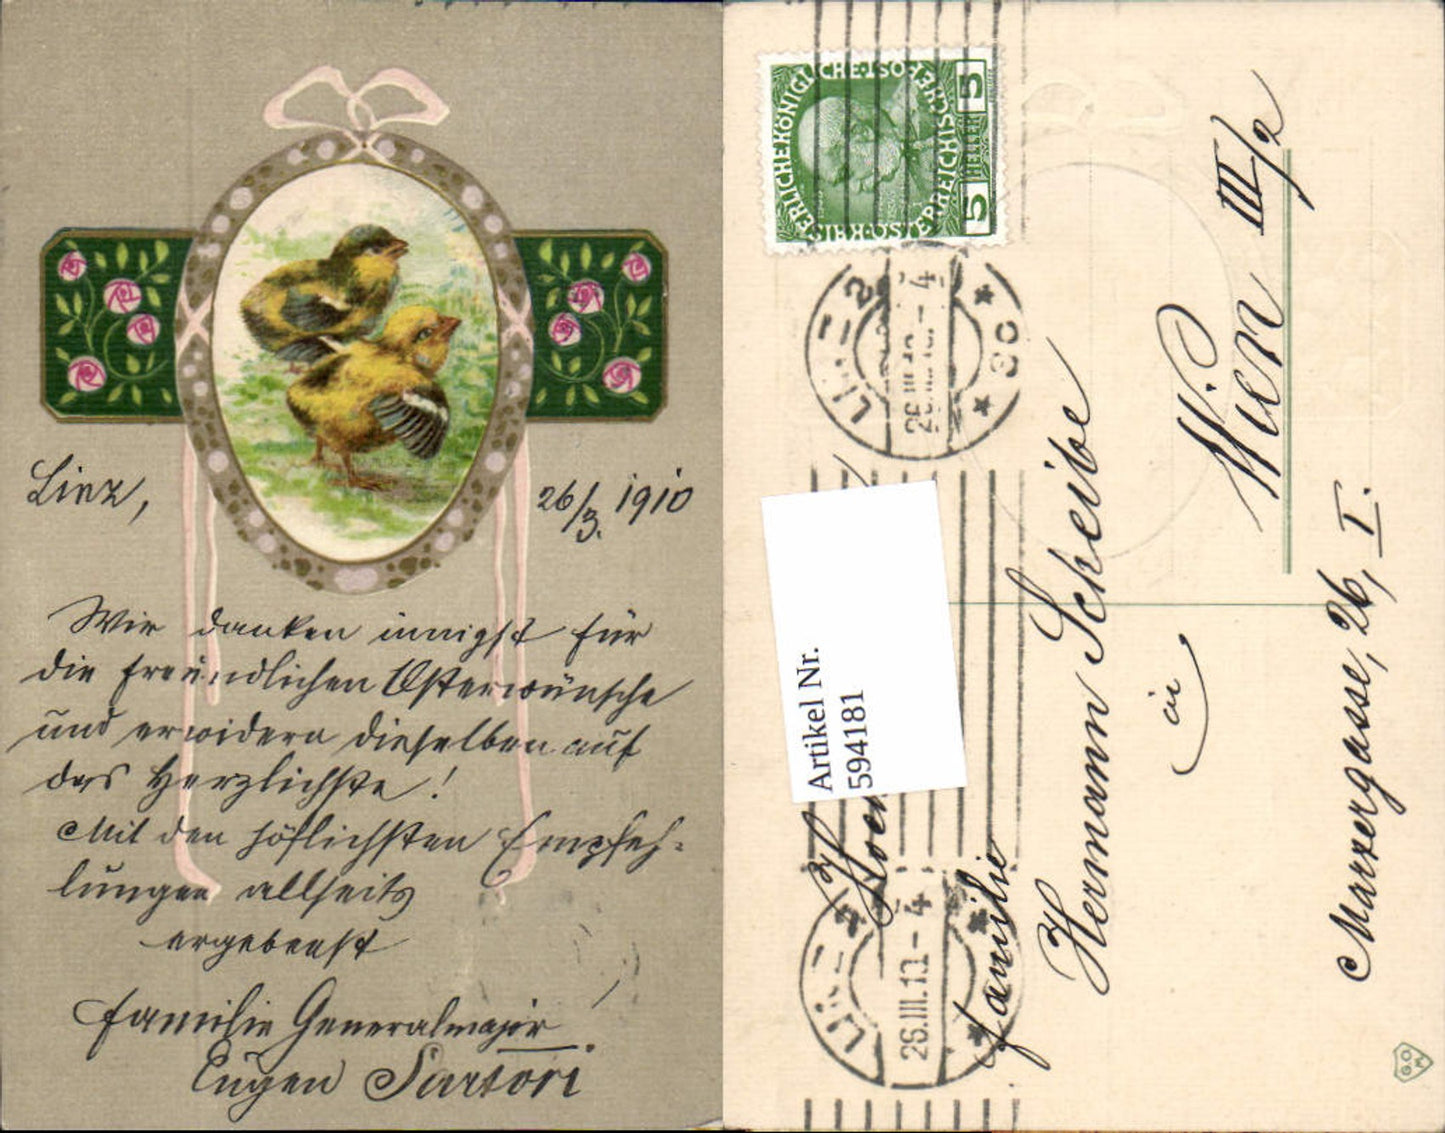 Linz,
26/3. 1910
Wir danken innigst für
die freundlichen Osterwünsche
und erwidern dieselben auf
das Herzlichste!
Mit den höflichsten Empfeh-
lungen allseits
ergebenst
Familie Generalmajor
Eugen Sartori
KAISERLICHE KÖNIGLICHE ÖSTERREICHISCHE POST
5 HELLER 5
LINZ 2
26.III.10-4
* 3c *
Artikel Nr.
594181
LINZ
26.III.10-4
Familie
Hermann Scheibe
in
Wien III/2
Marxergasse, 26, I.